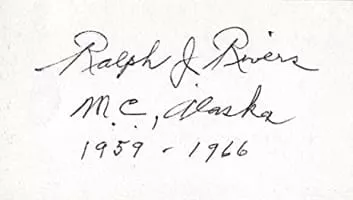 Ralph J Rivers
M.C., Alaska
1959 - 1966